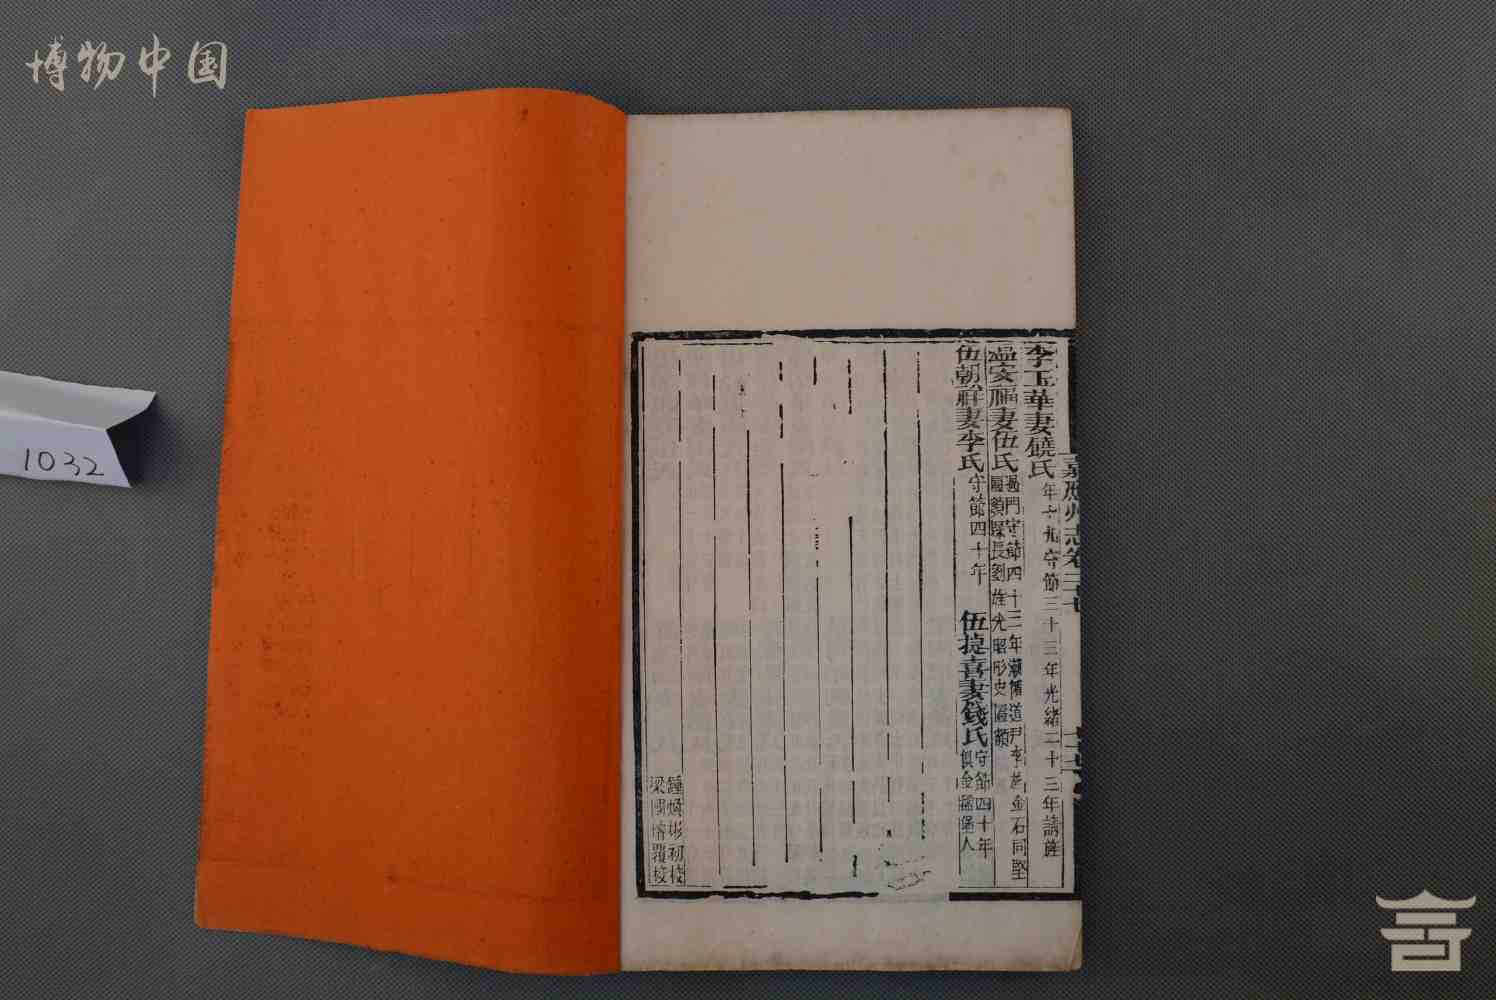 博物中国
1032
嘉應州志卷三十七
李玉華妻饒氏年十九守節三十三年光緒二十三年請旌
溫安福妻伍氏過門守節四十三年潮循道尹李
金石同堅
匾額縣長劉
光昭彤史匾額
伍朝祥妻李氏守節四十年
伍捷喜妻錢氏守節四十年
俱金
堡人
鍾
彬初校
梁國
覆校